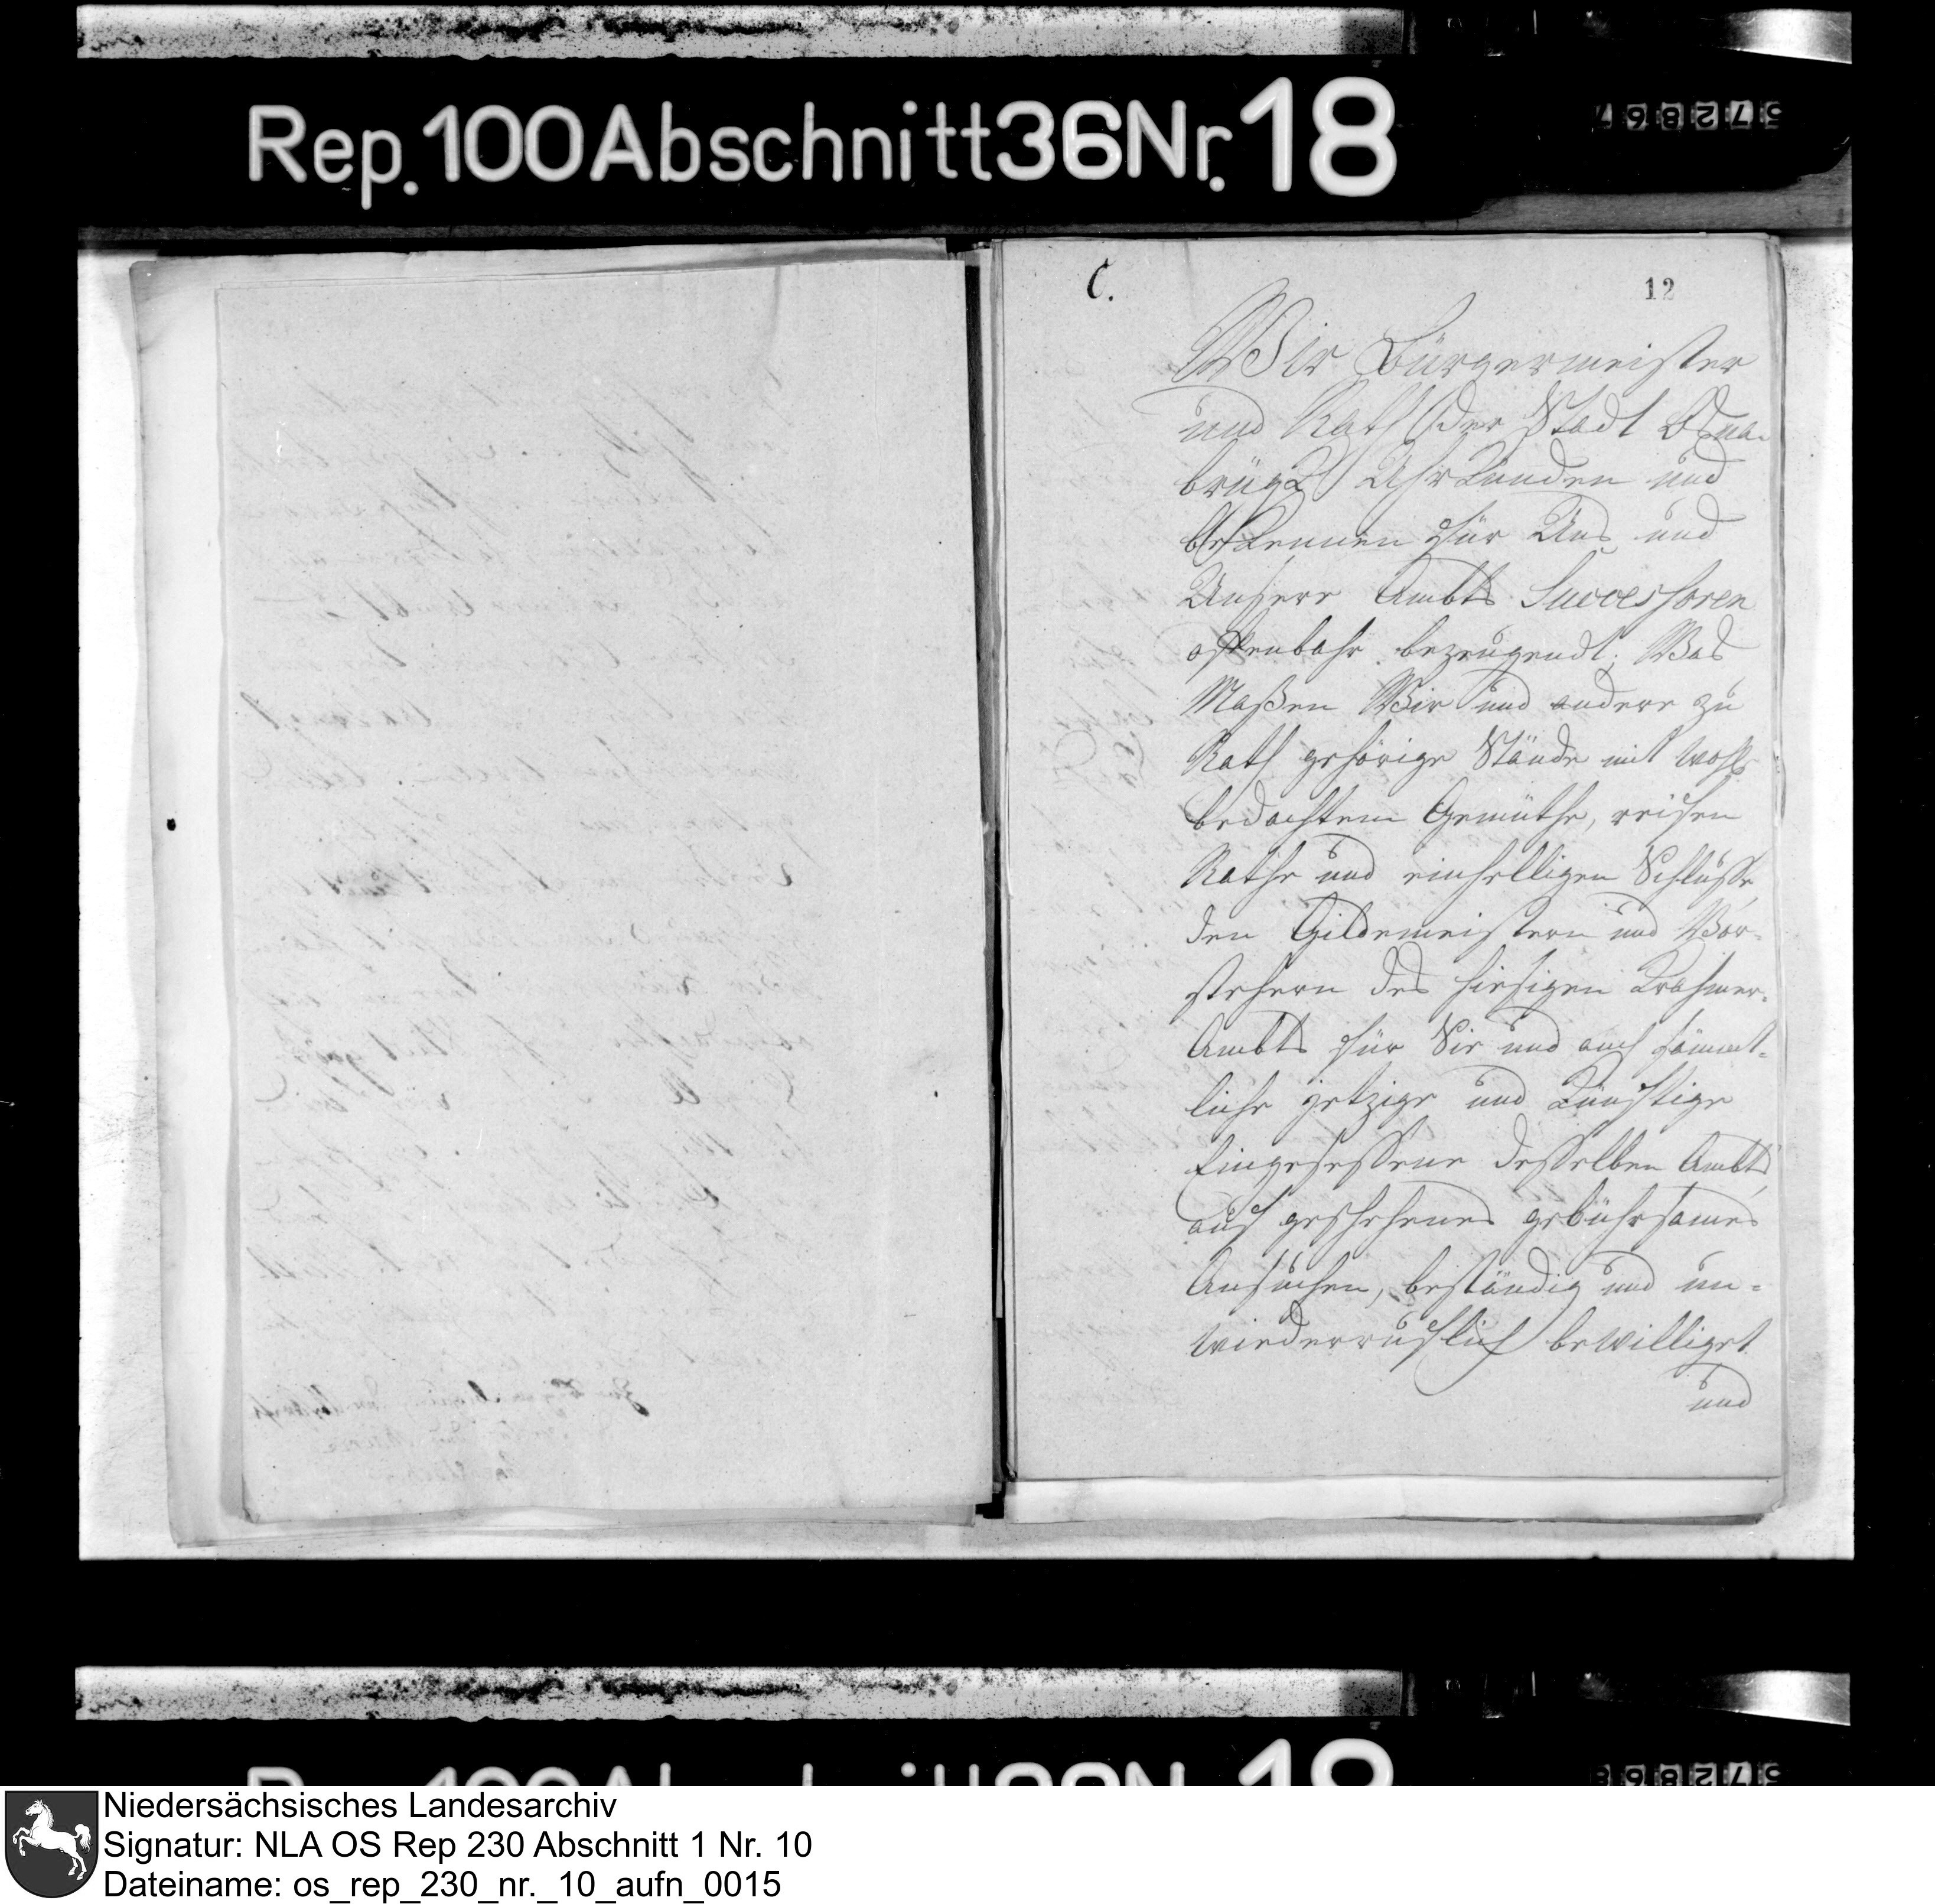 Rep. 100 Abschnitt 36 Nr. 18
572867
C.
12
Wir Bürgermeister
und Rath der Stadt Oßna-
brügk Uhrkunden und
bekennen für Uns und
Unsere Ambts Successoren
offenbahr bezeugendt; Was
Maßen Wir und andere zu
Rath gehörige Stände mit wohl-
bedachtem Gemüthe, reifen
Rathe und einhelligen Schlusse,
den Gildemeistern und Vor-
stehern des hiesigen Krahmer-
Ambts für Sie und auch sämmt-
liche jetzige und künftige
Eingesessene desselben Ambts,
auf geschehenes gebührsames
Ansuchen, beständig und un-
wiederruflich bewilliget
und
Niedersächsisches Landesarchiv
Signatur: NLA OS Rep 230 Abschnitt 1 Nr. 10
Dateiname: os_rep_230_nr._10_aufn_0015